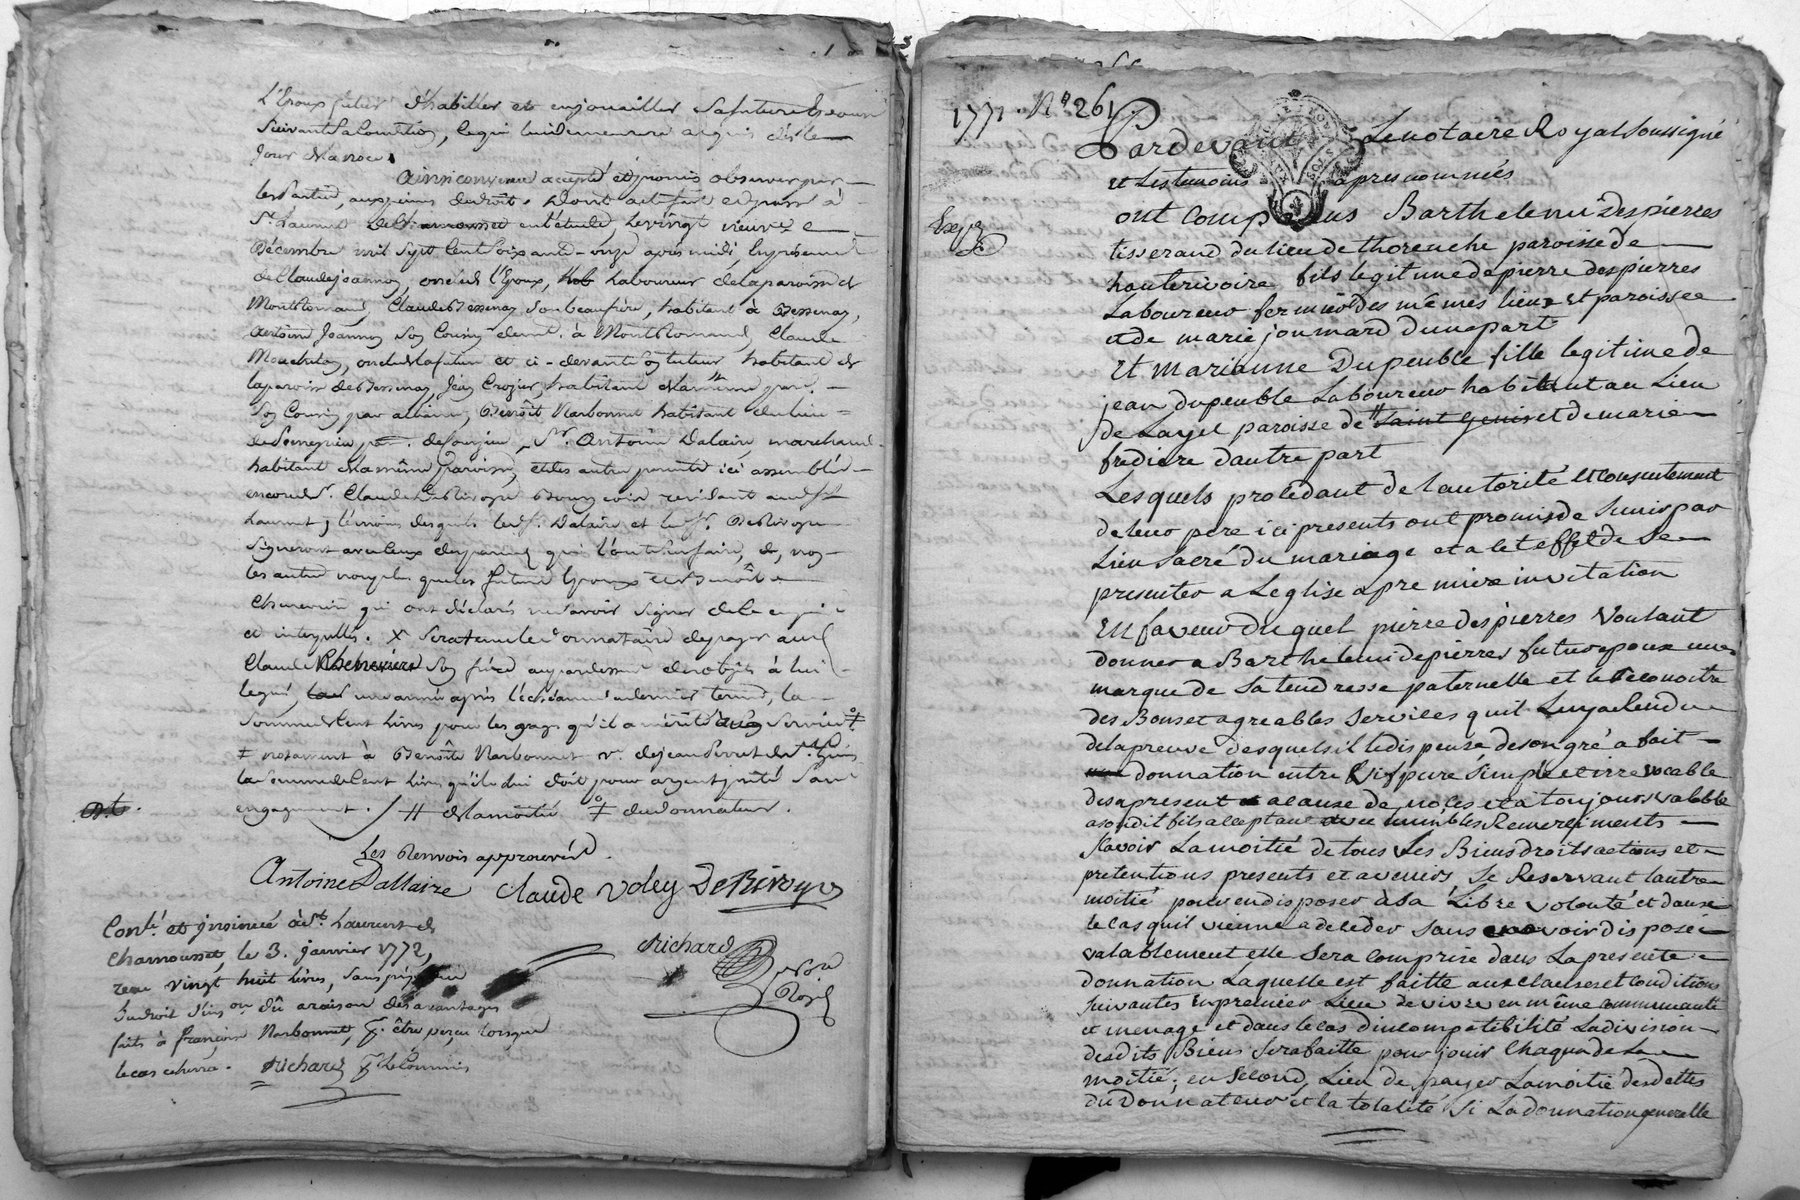 L'Epoux futur d'habiller et enjouailler sa future Epouse
suivant sa condition, ce qui lui demeurera acquis dès le
jour de la noce.
Ainsi convenu accepté et promis observer par
les parties, aux peines de droit. Dont acte fait et passé à
St Laurent de Chamousset en l'étude, le vingt neuvieme
Décembre mil sept cent soixante-onze après midi, en présence
de Claude Joannoy, oncle de l'Epoux, laboureur de la paroisse de
Montromand, Claude Bessenay son beaufrère, habitant à Bessenay,
Antoine Joannoy son Cousin demt. à Montromand, Claude
oncle de la future et ci-devant son tuteur habitant de
la paroisse de Bessenay, Jean Crozier, habitant même par.
son Cousin par alliance, Benoît Narbonnet habitant du lieu
de Souzieu, Sr. Antoine Dalaire, marchand
habitant de la même paroisse, et des autres parents ici assemblés
encore de Sr. Claude DeRivoyre Bourgeois residant aud. St
Laurent, témoins desquels led. Sr. Dalaire et led. Sr. DeRivoyre
signeront avec ceux des parens qui l'ont su faire, et non
les autres non plus que les futurs Epoux et Benoît
Chenevier qui ont déclaré ne savoir signer de ce enquis
et interpellés. X sera tenu le donnataire de payer aud.
Claude Cheneviere son frère au pardessus des objets à lui
legué, une année après l'échéance du dernier terme, la
somme de cent livres pour les gages qu'il a mérité à son service
‡ notament à Benoîte Narbonnet ve. de jean
la somme de cent livres qu'il lui doit pour argent prêté sans
engagement. // de la moitié ‡ du donnateur.
Les Renvois approuvés.
Antoine Dallaire Claude Voley DeRivoyre
Conlé. et insinué à St. Laurent de
Chamousset, le 3. janvier 1772,
reçu vingt huit livres, sans préjudice
du droit d'inson. dû a raison des avantages
faits à françoise Narbonnet, pr. être perçu lorsque
le cas echerra. Richard pr le Commis
Richard
Nore
Royal
1771. Nº 261
Pardevant Le notaire Royal soussigné
et Les temoins apres nommés
Expé
ont Comparus Barthelemi Despierres
tisserand du lieu de thorenche paroisse de
hauterivoire fils legitime de pierre despierres
Laboureur fermier des mêmes lieux et paroisse
et de marie jonmard dune part
Et marianne Dupeuble fille legitime de
jean dupeuble Laboureur habitant au Lieu
de Layel paroisse de // Saint Genis et de marie
frediere dautre part
Lesquels procedant de lautorité et Consentement
de leur pere ici presents ont promis de sunir par
Lien sacré du mariage et a cet effet de se
presenter a Leglise a premiere invitation
En faveur duquel pierre despierres Voulant
donner a Barthelemi depierres futur epoux une
marque de sa tendresse paternelle et le Reconoitre
des Bons et agreables services quil Luy a Rendu
de la preuve desquels il le dispense de son gré a fait
donnation entre Vifs pure simple et irrevocable
des apresent a cause de noces et a toujours valable
a son dit fils acceptant avec humbles Remerciments
sçavoir La moitié de tous Les Biens droits actions et
pretentions presents et avenirs se Reservant lautre
moitié pour en disposer à sa Libre volonté et dans
le cas quil vienne a deceder sans avoir disposé
valablement elle sera comprise dans La presente
donnation Laquelle est faitte aux clauses et conditions
suivantes En premier Lieu de vivre en même communauté
et menage et dans le cas dincompatibilité La division
desdits Biens sera faitte pour jouir Chaqun de La
moitié; en second Lieu de payer La moitié des dettes
du Donnateur et la totalité si La donnation generalle